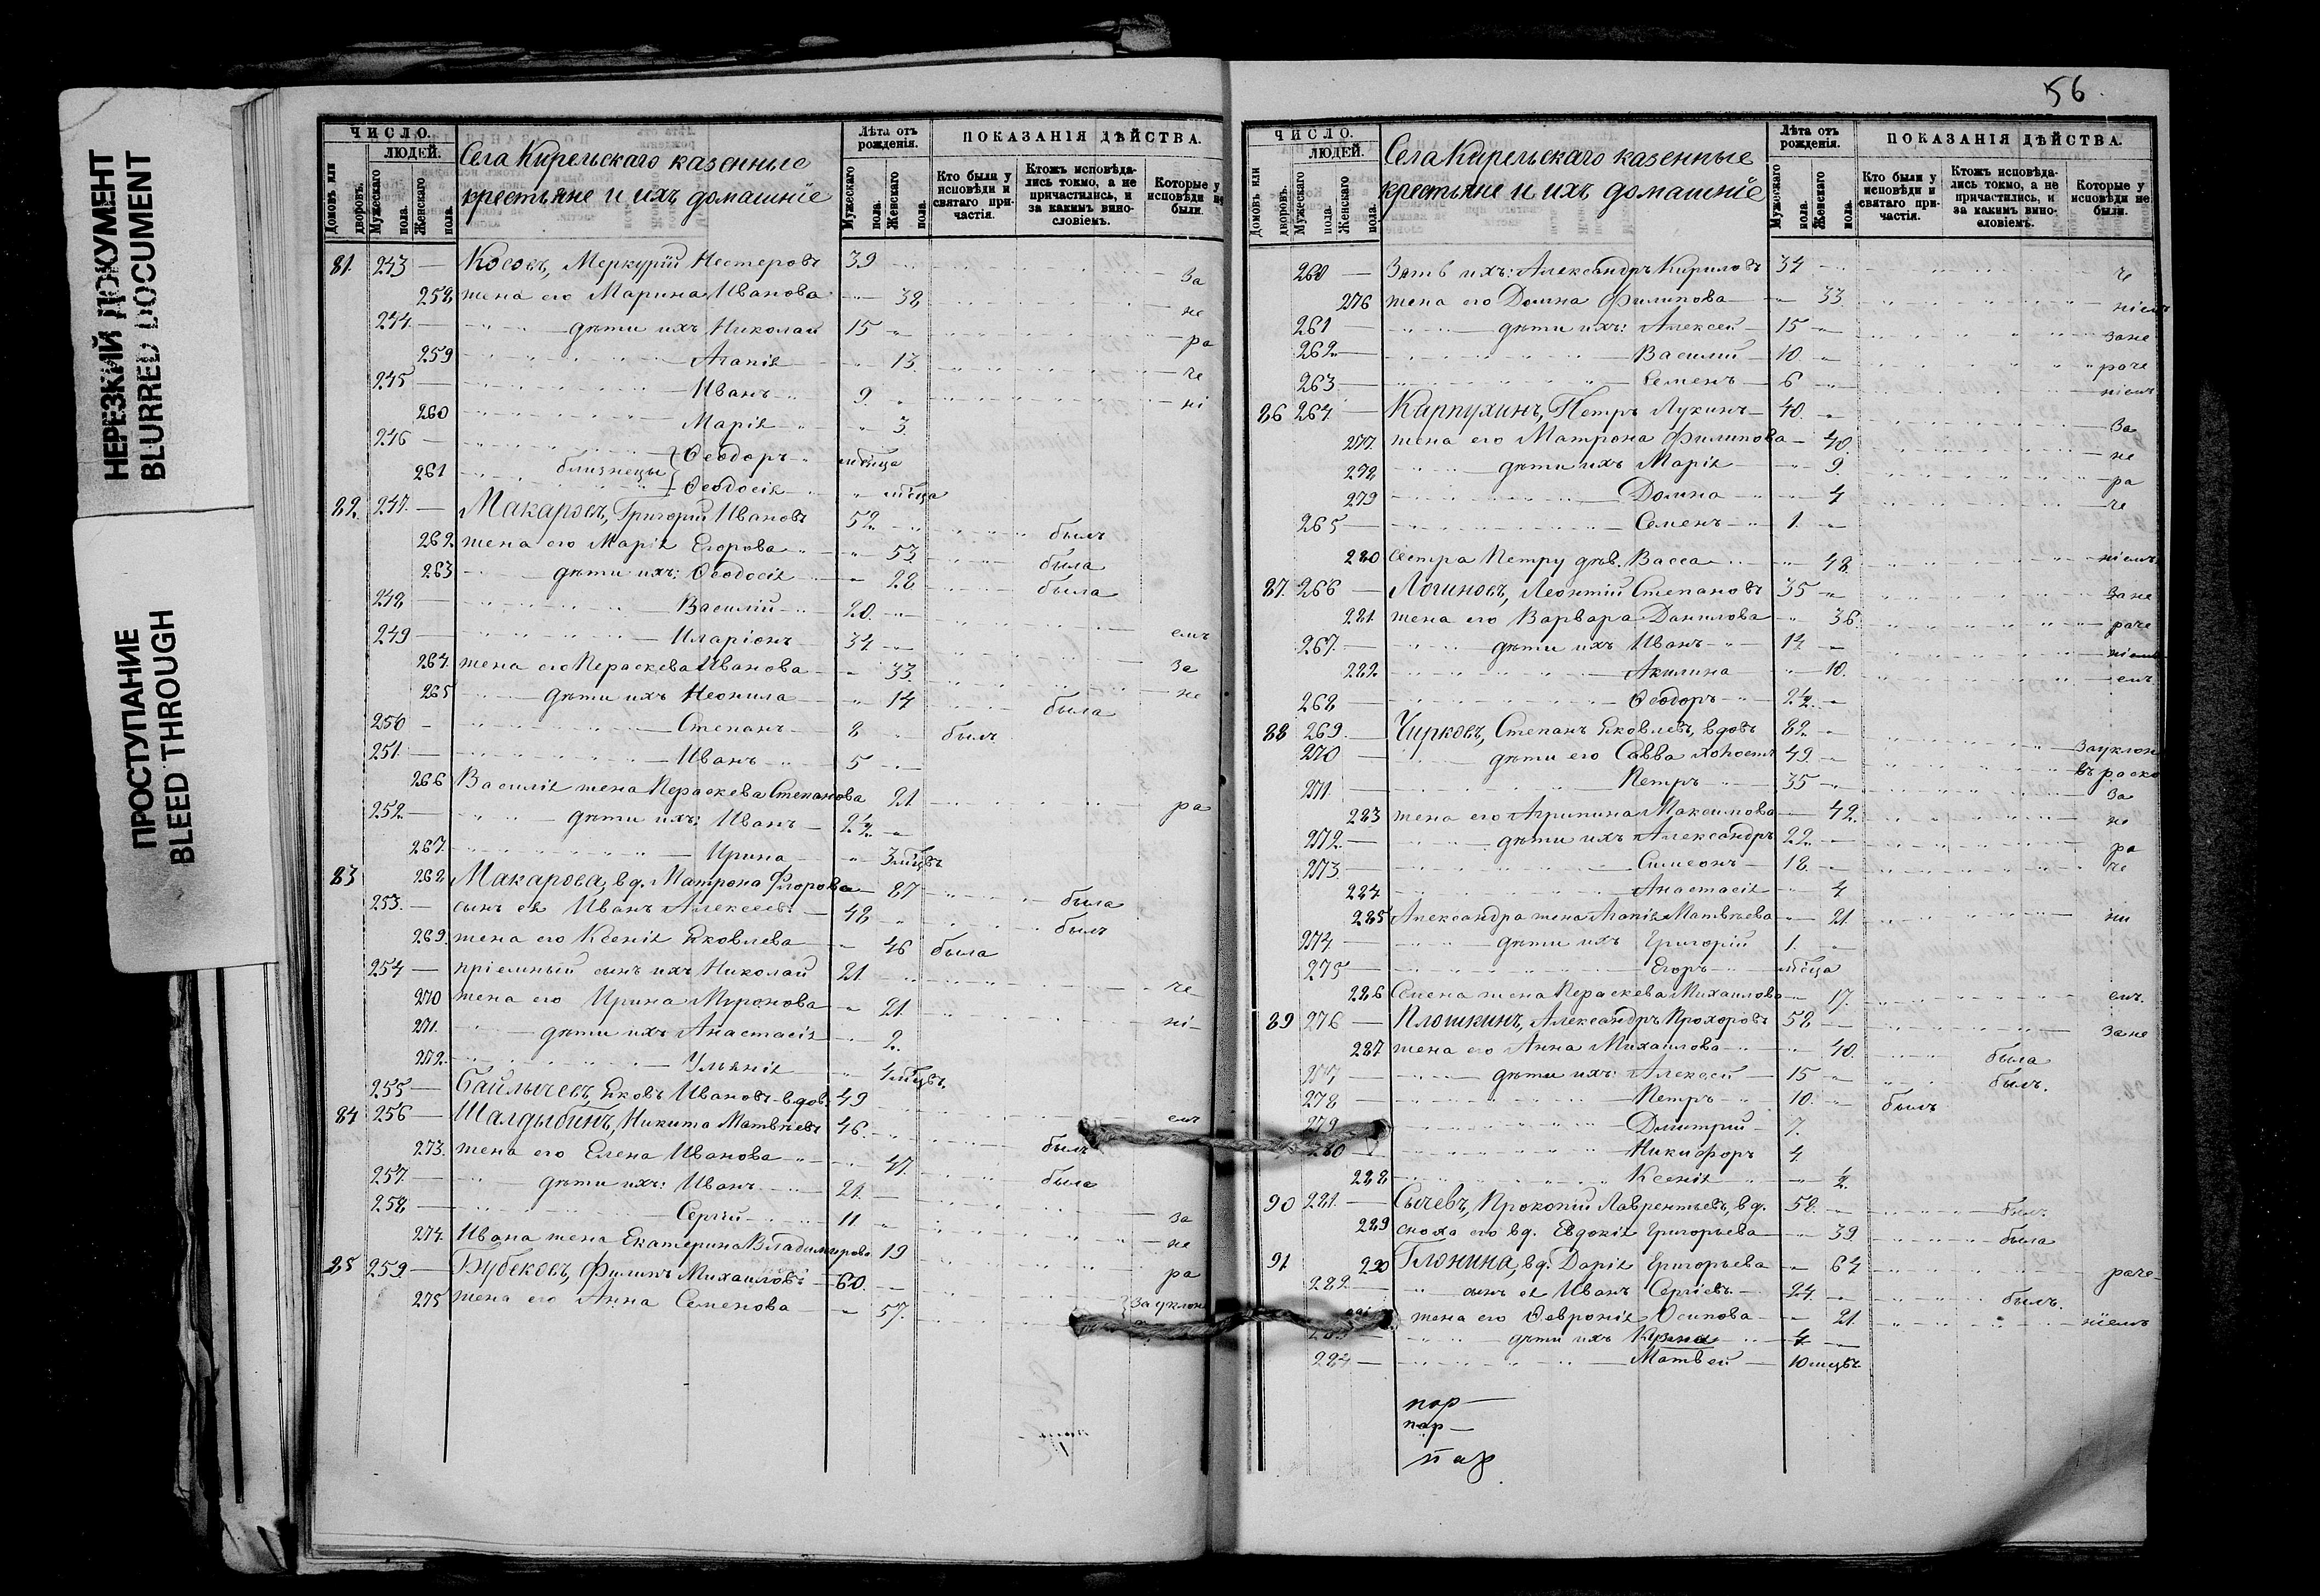 НЕРЕЗКИЙ ДОКУМЕНТ
BLURRED DOCUMENT
ПРОСТУПАНИЕ
BLEED THROUGH
ЧИСЛО.
ЛЮДЕЙ.
Домовъ или дворовъ.
Мужескаго пола.
Женскаго пола.
Села Кирельскаго казенные
крестьяне и ихъ домашніе
Лѣта отъ рожденія.
Мужескаго пола.
Женскаго пола.
ПОКАЗАНІЯ ДѢЙСТВА.
Кто были у исповѣди и святаго причастія.
Ктожъ исповѣдались токмо, а не причастились, и за какимъ винословіемъ.
Которые у исповѣди не были.
81. 243 — Косовъ, Меркурій Нестеровъ 39 за
258 жена его Марина Иванова 38 не
244 — дѣти ихъ Николай 15 ра
259 Агапія 13 че
245 — Иванъ 9 ні
260 Марія 3.
246 — Ѳеодоръ мѣсяца
261 близнецы Ѳеодосія мѣсяца
82. 247. — Макаровъ, Григорій Ивановъ 52 былъ
262 жена его Марія Егорова 53 была
263 дѣти ихъ: Ѳеодосія 28 была
248 — Василій 20
249 — Иларіонъ 34 емъ
264. жена его Параскева Иванова 33. за
265 дѣти ихъ Неонила 14 была не
250 — Степанъ 8 былъ
251 — Иванъ 5
266 Василія жена Параскева Степанова 21 ра
252 — дѣти ихъ: Иванъ 2½
267. Ирина 3 мѣсцъ
83 268 Макарова, вд. Матрона Флорова 87 была
253. — сынъ ея Иванъ Алексеевъ 48 былъ
269. жена его Ксенія Яковлева 46 была
254 — пріемный сынъ ихъ Николай 21 че
270 жена его Ирина Миронова 21. ні
271. дѣти ихъ Анастасія 2.
272. Ульянія 4 мѣсцъ
255 — Байлычевъ, Яковъ Ивановъ вдов. 49 емъ
84 256 — Шалдыбинъ, Никита Матвѣевъ 46. былъ
273. жена его Елена Иванова 47 была
257. — дѣти ихъ: Иванъ 21.
258 — Сергій 11 за
274. Ивана жена Екатерина Владимирова 19 не
85 259. — Бубековъ, Филипъ Михаиловъ 60. ра
275 жена его Анна Семенова 57. за уклон
56
ЧИСЛО.
ЛЮДЕЙ.
Домовъ или дворовъ.
Мужескаго пола.
Женскаго пола.
Села Кирельскаго казенные
крестьяне и ихъ домашніе
Лѣта отъ рожденія.
Мужескаго пола.
Женскаго пола.
ПОКАЗАНІЯ ДѢЙСТВА.
Кто были у исповѣди и святаго причастія.
Ктожъ исповѣдались токмо, а не причастились, и за какимъ винословіемъ.
Которые у исповѣди не были.
260 — Зять ихъ: Александръ Кириловъ 34 че
276 жена его Домна Филипова 33 ніемъ
261 — дѣти ихъ: Алексей 15 зане
262 — Василій 10 раче
263 — Семенъ 6 ніемъ
86 264. — Карпухинъ, Петръ Лукинъ 40. за
277. жена его Матрона Филипова 40. не
278 дѣти ихъ Марія 9. ра
279 Домна 4 че
265 — Семенъ 1.
280 сестра Петру дѣв. Васса 48. ніемъ
87. 266 — Логиновъ, Леонтій Степановъ 35 зане
281. жена его Варвара Данилова 36. раче
267. — дѣти ихъ Иванъ 14 ніемъ
282. Акилина 10. емъ
268 — Ѳеодоръ 2½
88 269. Чирковъ, Степанъ Яковлевъ, вдовъ 82. за уклон
270 — дѣти его Савва холостъ 49. въ раско
271 — Петръ 35 за
283 жена его Агрипина Максимова 42. не
272. — дѣти ихъ Александръ 22. ра
273 — Симеонъ 18. че
284. Анастасія 4
285 Александра жена Агапія Матвѣева 21. ни
274. — дѣти ихъ Григорій 1.
275 — Егоръ мѣсяца
286 Семена жена Параскева Михаилова 17. емъ.
89 276 — Плошкинъ, Александръ Прохоровъ 58 зане
287 жена его Анна Михаилова 40. была
277. — дѣти ихъ: Алексей 15 былъ.
278 — Петръ 10. былъ
279 Дмитрий 7.
280 Никифоръ 4
288 Ксенія ½
90 281. — Сычевъ, Прокопій Лаврентьевъ, вд. 58. былъ
289 сноха его вд. Евдокія Григорьева 39 была
91 290 Глонина, вд. Дарія Григорьева 64 раче
282. сынъ ея Иванъ Сергіевъ 24. былъ.
жена его Ѳевронія Осипова 21. ніемъ
дѣти ихъ Кузма 4
284 — Матвей 10 мѣсцъ
пар —
пар —
пар